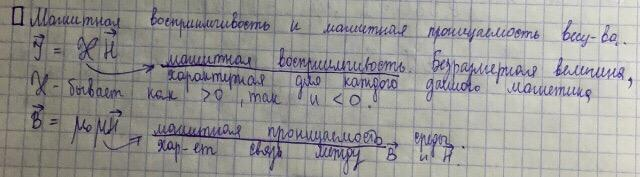 Магнитная восприимчивость и магнитная проницаемость вещ-ва.
J⃗ = ϰ H⃗ магнитная восприимчивость. Безразмерная величина,
характерная для каждого данного магнетика
ϰ - бывает как >0, так и <0.
B⃗ = μ₀μH⃗ магнитная проницаемость среды.
хар-ет связь между B⃗ и H⃗.